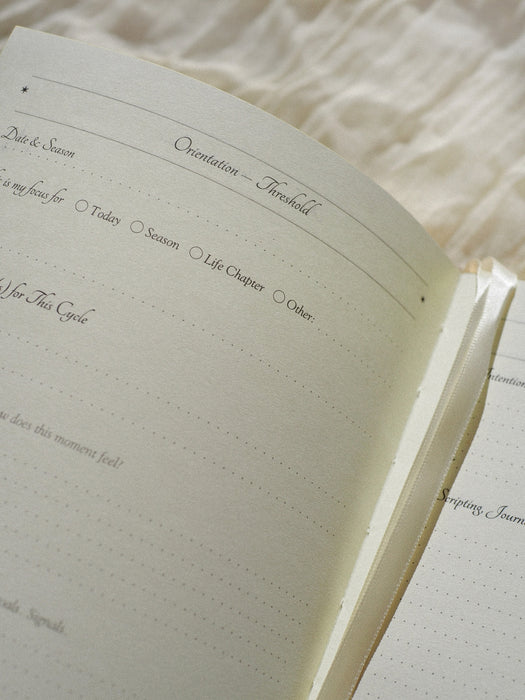 Orientation – Threshold
Date & Season
is my focus for ○ Today ○ Season ○ Life Chapter ○ Other:
for This Cycle
does this moment feel?
Signals
Intention
Scripting, Journ